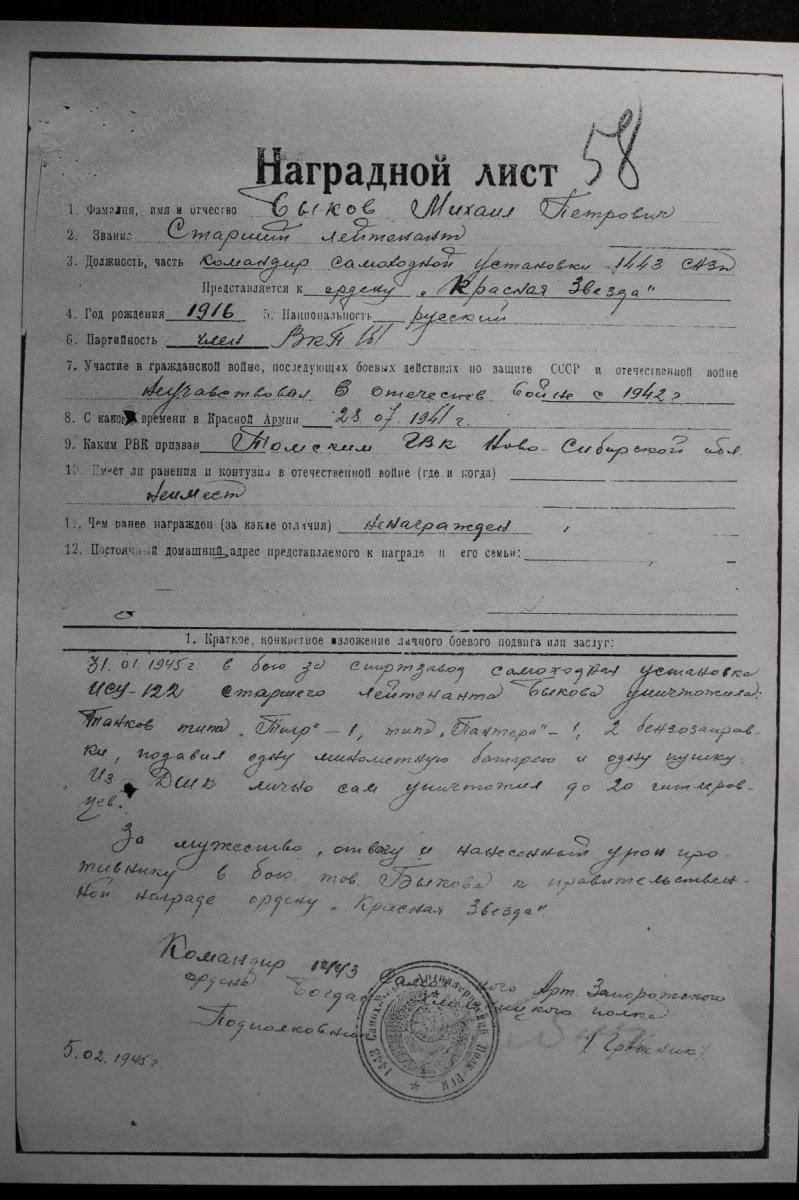 58
Наградной лист
1. Фамилия, имя и отчество Быков Михаил Петрович
2. Звание Старший лейтенант
3. Должность, часть командир самоходной установки 1443 САЗп
Представляется к ордену „Красная Звезда"
4. Год рождения 1916 5. Национальность русский
6. Партийность член ВКП(б)
7. Участие в гражданской войне, последующих боевых действиях по защите СССР и отечественной войне
неучавствовал. В отечествен. войне с 1942 г
8. С какого времени в Красной Армии 23.07.1941 г.
9. Каким РВК призван Томским ГВК Ново-Сибирской обл
10. Имеет ли ранения и контузии в отечественной войне (где и когда)
неимеет
11. Чем ранее награжден (за какие отличия) ненагражден
12. Постоянный домашний адрес представляемого к награде и его семьи:
1. Краткое, конкретное изложение личного боевого подвига или заслуг:
31.01.1945 г. в бою за спиртзавод самоходная установка
ИСУ-122 старшего лейтенанта Быкова уничтожила:
Танков типа „Тигр" – 1, типа „Пантера" – 1, 2 бензозаправ-
ки, подавил одну минометную батарею и одну пушку.
Из лично сам уничтожил до 20 гитлеров-
цев.
За мужество, отвагу и нанесенный урон про-
тивнику в бою тов. Быкова к правительствен-
ной награде ордену „Красная Звезда"
Командир 1443 Самоходного Арт. Запорожского
ордена Богдана Хмельницкого полка
Подполковник
5.02.1945 г.
1443 Самоходный Артиллерийский Полк РГК